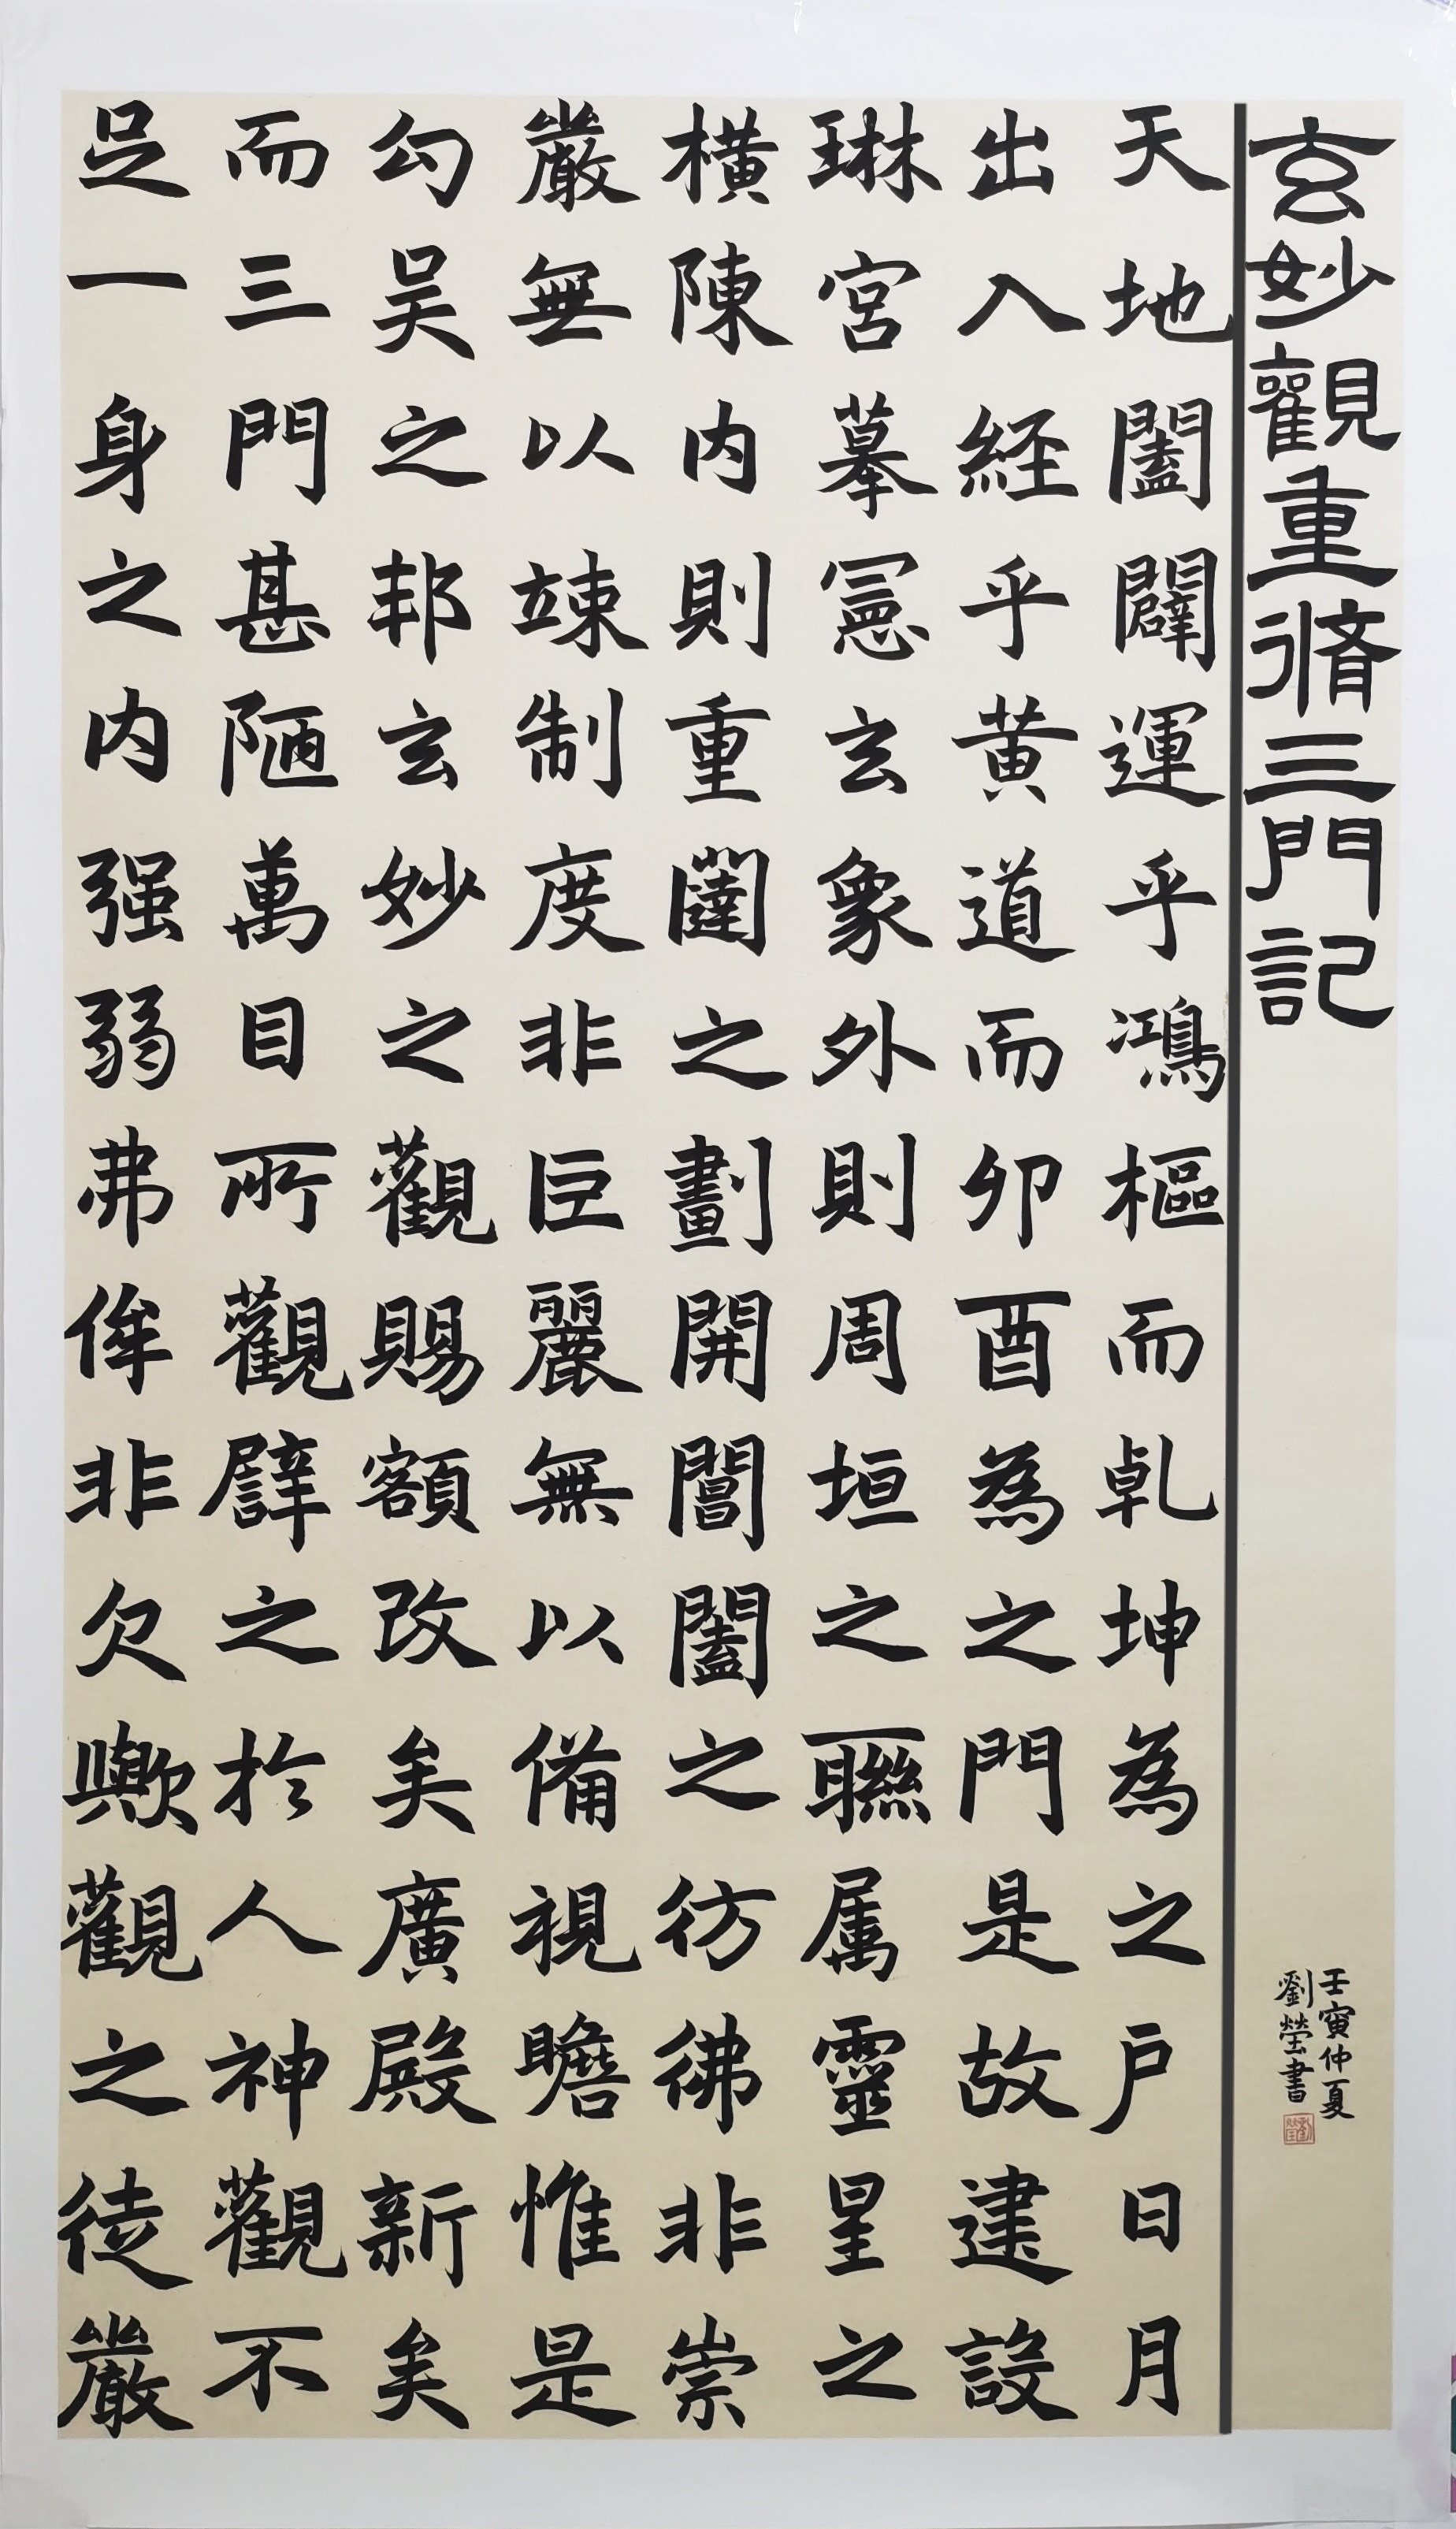 玄妙觀重脩三門記
壬寅仲夏
劉瑩書
天地闔闢運乎鴻樞而乹坤為之户日月
出入経乎黄道而卯酉為之門是故建設
琳宮摹憲玄象外則周垣之聯属靈星之
橫陳内則重闥之劃開閶闔之彷彿非崇
嚴無以竦制度非巨麗無以備視瞻惟是
勾吴之邦玄妙之觀賜額改矣廣殿新矣
而三門甚陋萬目所觀譬之於人神觀不
足一身之内强弱弗侔非欠歟觀之徒嚴